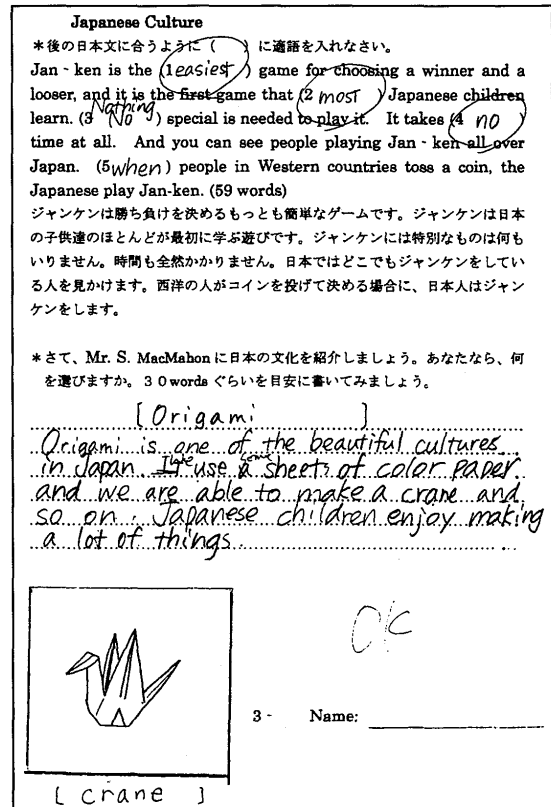 Japanese Culture
＊後の日本文に合うように（　　）に適語を入れなさい。
Jan - ken is the (1 easiest ) game for choosing a winner and a
looser, and it is the first game that (2 most ) Japanese children
Nothing
learn. (3 No ) special is needed to play it. It takes (4 no )
time at all. And you can see people playing Jan - ken all over
Japan. (5 when ) people in Western countries toss a coin, the
Japanese play Jan-ken. (59 words)
ジャンケンは勝ち負けを決めるもっとも簡単なゲームです。ジャンケンは日本
の子供達のほとんどが最初に学ぶ遊びです。ジャンケンには特別なものは何も
いりません。時間も全然かかりません。日本ではどこでもジャンケンをしてい
る人を見かけます。西洋の人がコインを投げて決める場合に、日本人はジャン
ケンをします。
＊さて、Mr. S. MacMahon に日本の文化を紹介しましょう。あなたなら、何
を選びますか。３０words ぐらいを目安に書いてみましょう。
[ Origami ]
Origami is one of the beautiful cultures
some
in Japan. use a sheets of color paper
and we are able to make a crane and
so on. Japanese children enjoy making
a lot of things.
OK
3 - Name:
[ crane ]